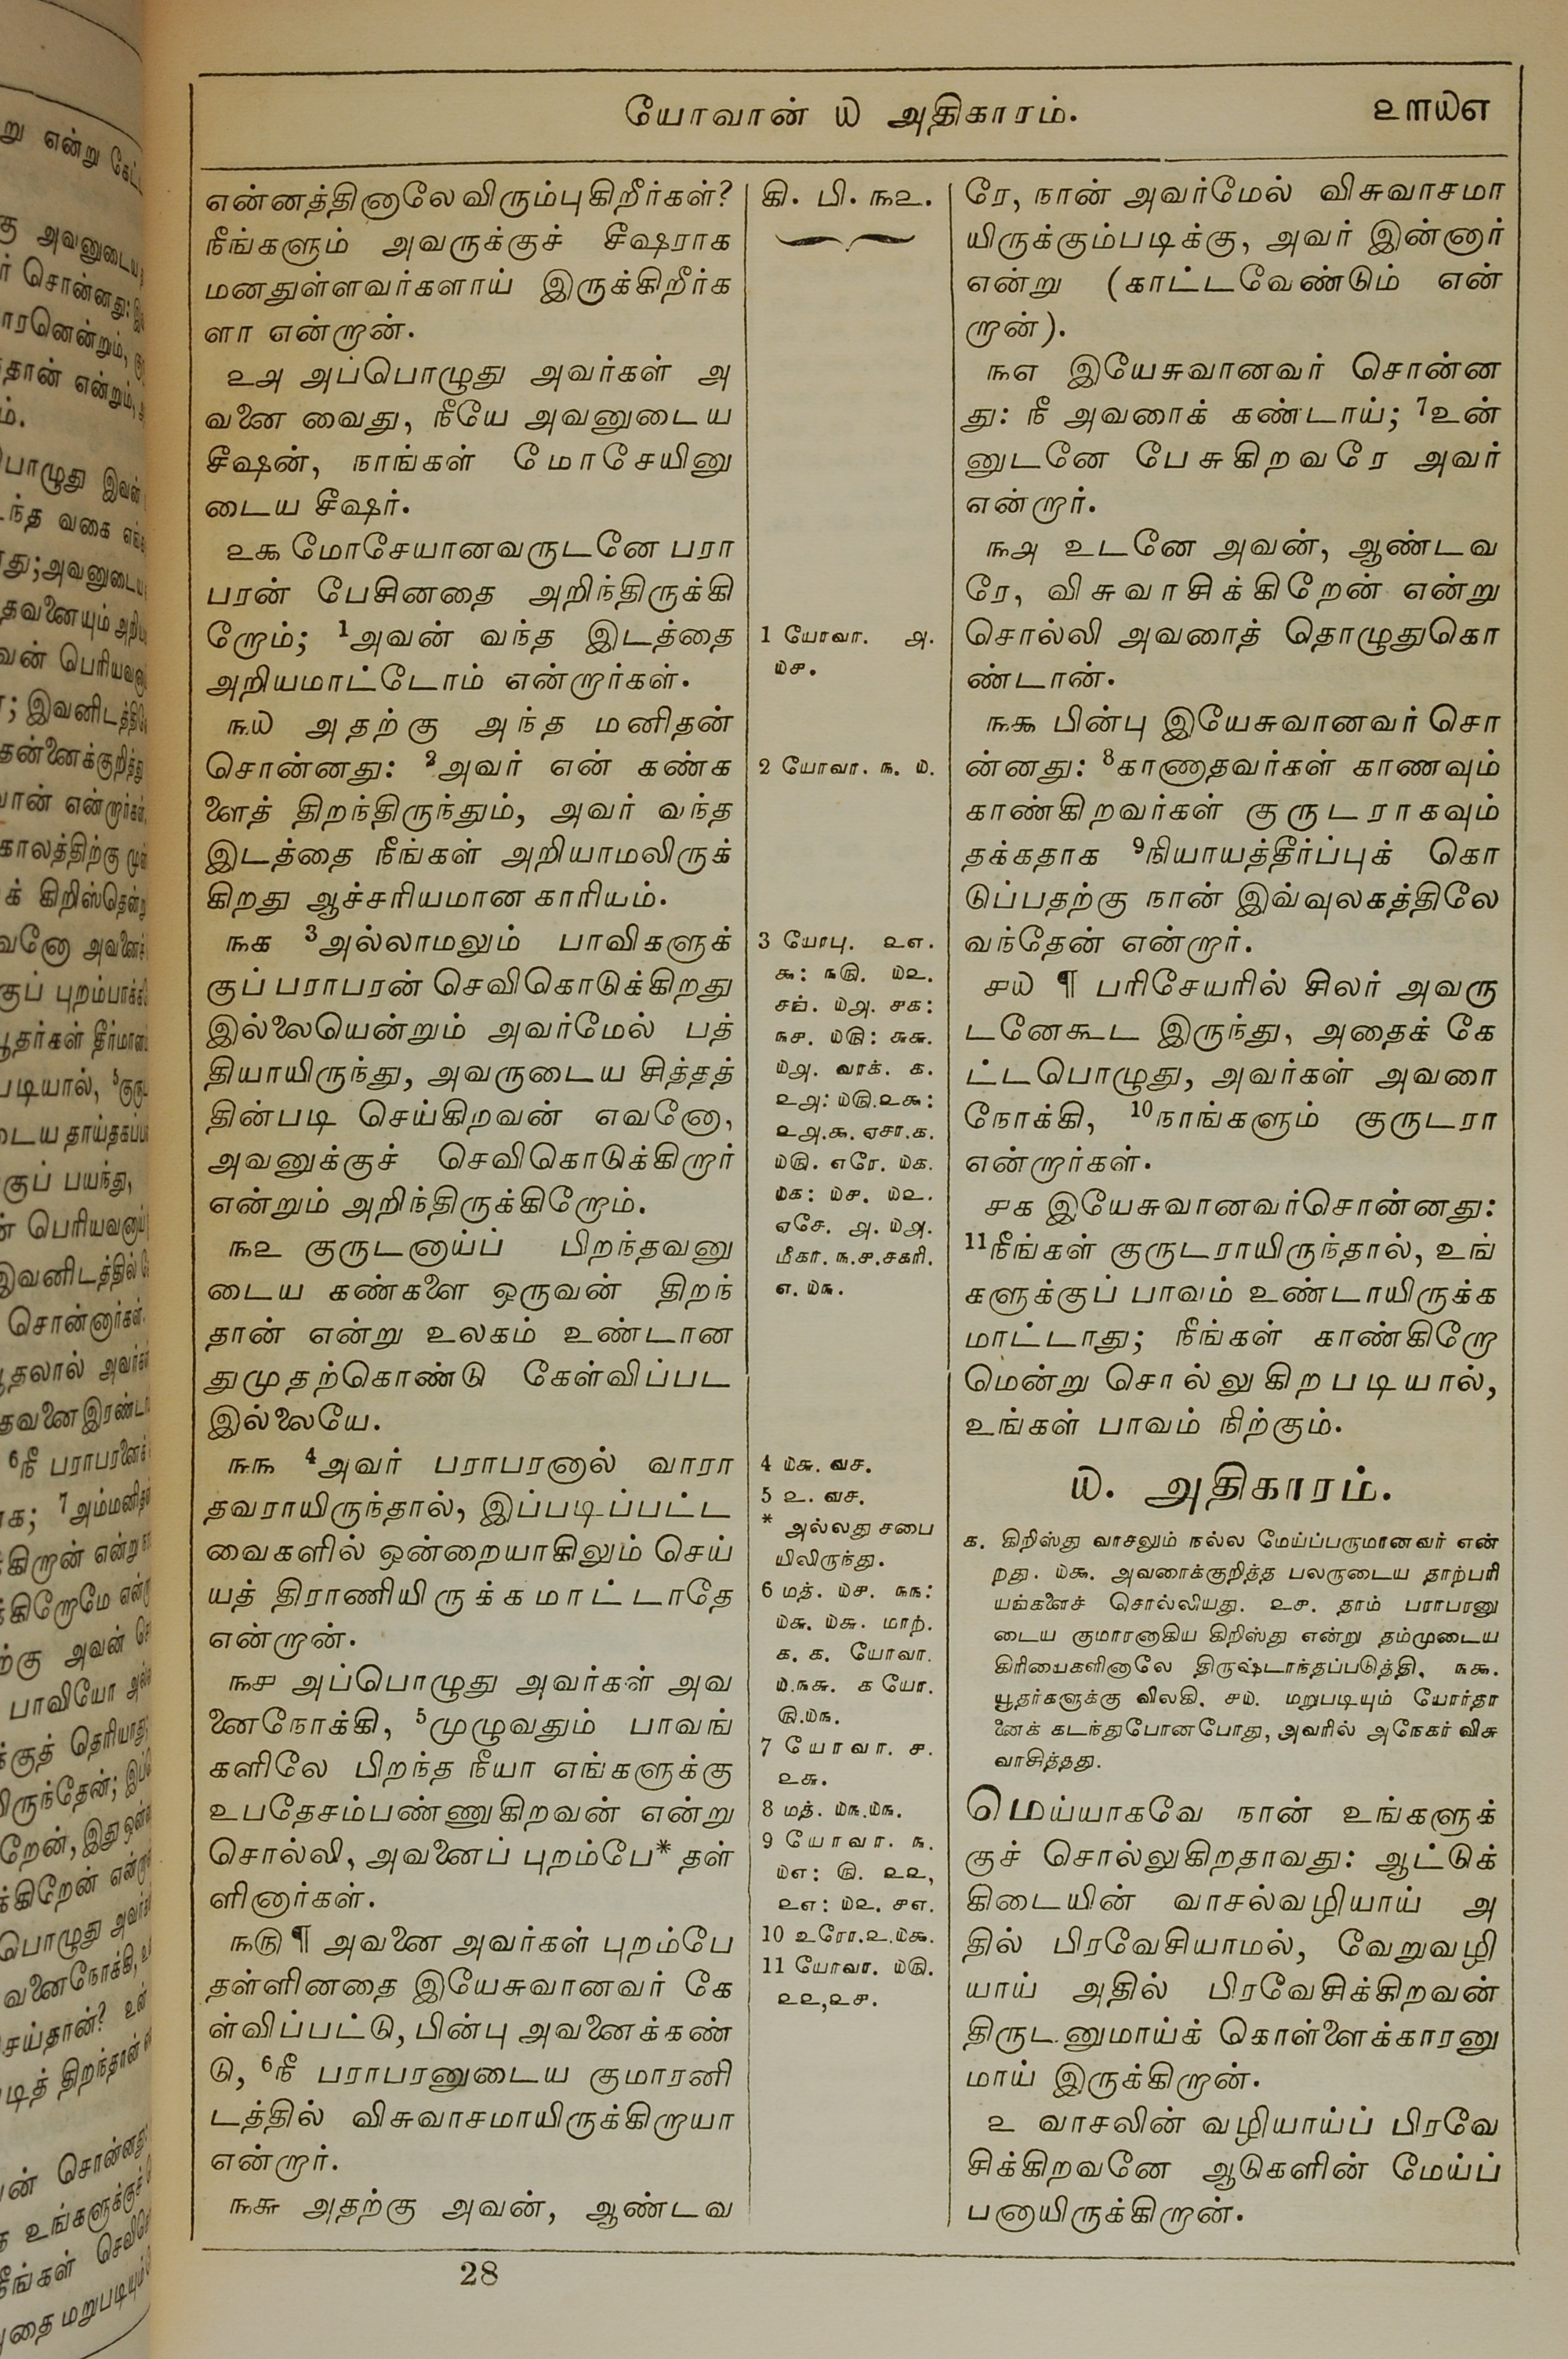 யோவான் ௰ அதிகாரம்.
௨௱௰௭
என்னத்தினாலே விரும்புகிறீர்கள்?
நீங்களும் அவருக்குச் சீஷராக
மனதுள்ளவர்களாய் இருக்கிறீர்க
ளா என்றான்.
௨௮ அப்பொழுது அவர்கள் அ
வனை வைது, நீயே அவனுடைய
சீஷன், நாங்கள் மோசேயினு
டைய சீஷர்.
௨௯ மோசேயானவருடனே பரா
பரன் பேசினதை அறிந்திருக்கி
றோம்; 1அவன் வந்த இடத்தை
அறியமாட்டோம் என்றார்கள்.
௩௰ அதற்கு அந்த மனிதன்
சொன்னது: 2அவர் என் கண்க
ளைத் திறந்திருந்தும், அவர் வந்த
இடத்தை நீங்கள் அறியாமலிருக்
கிறது ஆச்சரியமான காரியம்.
௩௧ 3அல்லாமலும் பாவிகளுக்
குப் பராபரன் செவிகொடுக்கிறது
இல்லையென்றும் அவர்மேல் பத்
தியாயிருந்து, அவருடைய சித்தத்
தின்படி செய்கிறவன் எவனோ,
அவனுக்குச் செவிகொடுக்கிறார்
என்றும் அறிந்திருக்கிறோம்.
௩௨ குருடனாய்ப் பிறந்தவனு
டைய கண்களை ஒருவன் திறந்
தான் என்று உலகம் உண்டான
துமுதற்கொண்டு கேள்விப்பட
இல்லையே.
௩௩ 4அவர் பராபரனால் வாரா
தவராயிருந்தால், இப்படிப்பட்ட
வைகளில் ஒன்றையாகிலும் செய்
யத் திராணியிருக்கமாட்டாதே
என்றான்.
௩௪ அப்பொழுது அவர்கள் அவ
னைநோக்கி, 5முழுவதும் பாவங்
களிலே பிறந்த நீயா எங்களுக்கு
உபதேசம்பண்ணுகிறவன் என்று
சொல்லி, அவனைப் புறம்பே* தள்
ளினார்கள்.
௩௫ ¶ அவனை அவர்கள் புறம்பே
தள்ளினதை இயேசுவானவர் கே
ள்விப்பட்டு, பின்பு அவனைக்கண்
டு, 6நீ பராபரனுடைய குமாரனி
டத்தில் விசுவாசமாயிருக்கிறாயா
என்றார்.
௩௬ அதற்கு அவன், ஆண்டவ
கி. பி. ௩௨.
1 யோவா. ௮.
௰௪.
2 யோவா. ௩. ௰.
3 யோபு. ௨௭.
௯: ௩௫. ௰௨.
சங். ௰௮. ௪௧:
௩௪. ௰௫: ௬௬.
௰௮. வாக். ௧.
௨௮: ௰௫.௨௯:
௨௮.௯. ஏசா.௧.
௰௫. எரே. ௰௧.
௰௧: ௰௪. ௰௨.
ஏசே. ௮. ௰௮.
மீகா. ௩.௪.சகரி.
௭. ௰௩.
4 ௰௬. வச.
5 ௨. வச.
* அல்லது சபை
யிலிருந்து.
6 மத். ௰௪. ௩௩:
௰௬. ௰௬. மாற்.
௧. ௧. யோவா.
௰.௩௬. ௧ யோ.
௫.௰௩.
7 யோவா. ௪.
௨௬.
8 மத். ௰௩.௰௩.
9 யோவா. ௩.
௰௭: ௫. ௨௨,
௨௭: ௰௨. ௪௭.
10 உரோ.௨.௰௯.
11 யோவா. ௰௫.
௨௨,௨௪.
ரே, நான் அவர்மேல் விசுவாசமா
யிருக்கும்படிக்கு, அவர் இன்னார்
என்று (காட்டவேண்டும் என்
றான்).
௩௭ இயேசுவானவர் சொன்ன
து: நீ அவரைக் கண்டாய்; 7உன்
னுடனே பேசுகிறவரே அவர்
என்றார்.
௩௮ உடனே அவன், ஆண்டவ
ரே, விசுவாசிக்கிறேன் என்று
சொல்லி அவரைத் தொழுதுகொ
ண்டான்.
௩௯ பின்பு இயேசுவானவர் சொ
ன்னது: 8காணாதவர்கள் காணவும்
காண்கிறவர்கள் குருடராகவும்
தக்கதாக 9நியாயத்தீர்ப்புக் கொ
டுப்பதற்கு நான் இவ்வுலகத்திலே
வந்தேன் என்றார்.
௪௰ ¶ பரிசேயரில் சிலர் அவரு
டனேகூட இருந்து, அதைக் கே
ட்டபொழுது, அவர்கள் அவரை
நோக்கி, 10நாங்களும் குருடரா
என்றார்கள்.
௪௧ இயேசுவானவர்சொன்னது:
11நீங்கள் குருடராயிருந்தால், உங்
களுக்குப் பாவம் உண்டாயிருக்க
மாட்டாது; நீங்கள் காண்கிறோ
மென்று சொல்லுகிறபடியால்,
உங்கள் பாவம் நிற்கும்.
௰. அதிகாரம்.
௧. கிறிஸ்து வாசலும் நல்ல மேய்ப்பருமானவர் என்
றது. ௰௯. அவரைக்குறித்த பலருடைய தாற்பரி
யங்களைச் சொல்லியது. ௨௪. தாம் பராபரனு
டைய குமாரனாகிய கிறிஸ்து என்று தம்முடைய
கிரியைகளினாலே திருஷ்டாந்தப்படுத்தி, ௩௯.
யூதர்களுக்கு விலகி. ௪௰. மறுபடியும் யோர்தா
னைக் கடந்துபோனபோது, அவரில் அநேகர் விசு
வாசித்தது.
மெய்யாகவே நான் உங்களுக்
குச் சொல்லுகிறதாவது: ஆட்டுக்
கிடையின் வாசல்வழியாய் அ
தில் பிரவேசியாமல், வேறுவழி
யாய் அதில் பிரவேசிக்கிறவன்
திருடனுமாய்க் கொள்ளைக்காரனு
மாய் இருக்கிறான்.
௨ வாசலின் வழியாய்ப் பிரவே
சிக்கிறவனே ஆடுகளின் மேய்ப்
பனாயிருக்கிறான்.
28